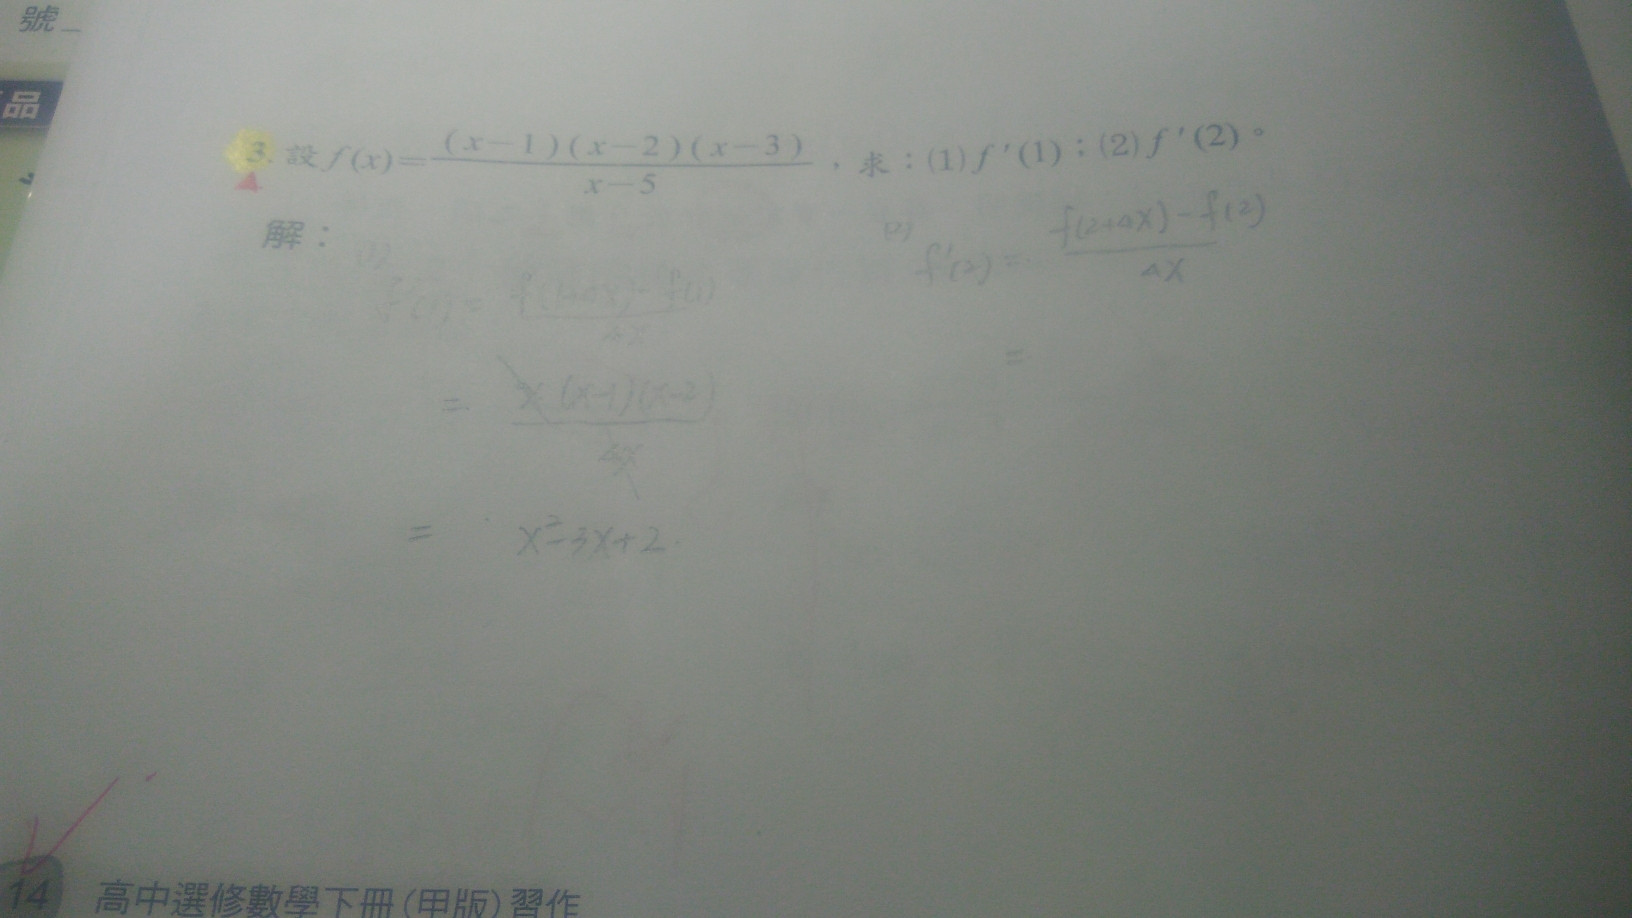 號
品
3. 設 f(x)=\frac{(x-1)(x-2)(x-3)}{x-5},求:(1) f'(1);(2) f'(2)。
解:
(1) f'(1) = \frac{f(1+Δx)-f(1)}{Δx}
= \frac{x(x-1)(x-2)}{Δx}
= x²-3x+2.
(2) f'(2) = \frac{f(2+Δx)-f(2)}{Δx}
=
14 高中選修數學下冊(甲版)習作